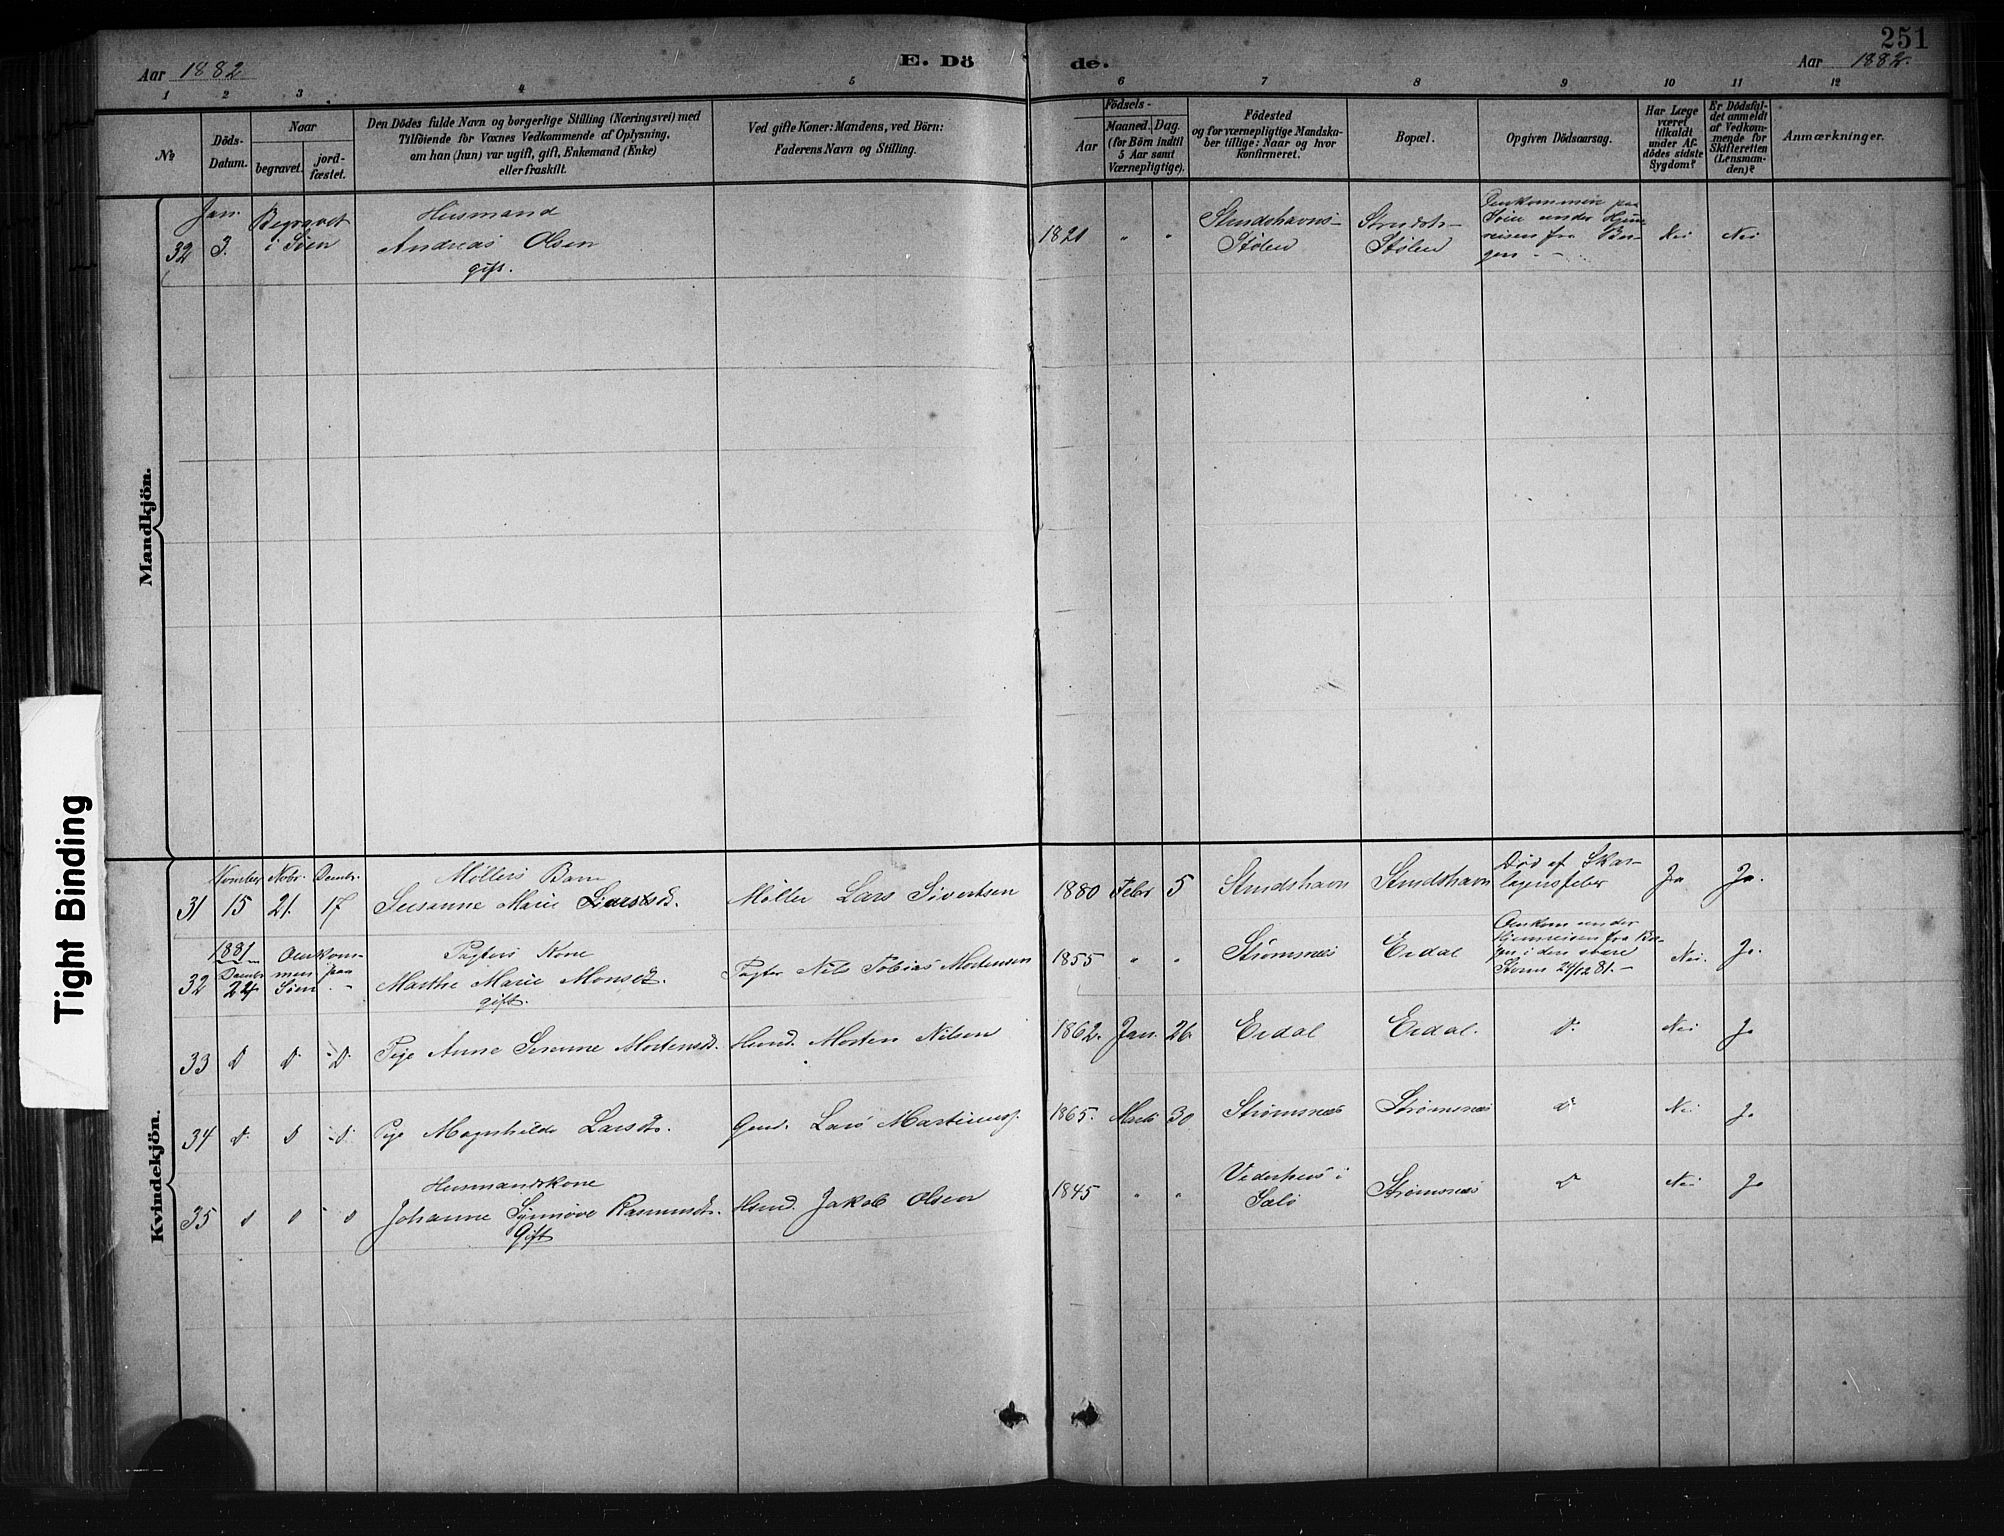 251
Aar 1882
E. Dö
de.
Aar 1882.
1 2 3 4 5 6 7 8 9 10 11 12
No
Döds-
Datum.
Naar
begravet.
jord-
fæstet.
Den Dödes fulde Navn og borgerlige Stilling (Næringsvei) med
Tilföiende for Voxnes Vedkommende af Oplysning,
om han (hun) var ugift, gift, Enkemand (Enke)
eller fraskilt.
Ved gifte Koner: Mandens, ved Börn:
Faderens Navn og Stilling.
Födsels-
Aar
Maaned. Dag.
(for Börn indtil
5 Aar samt
Værnepligtige).
Födested
og for værnepligtige Mandska-
ber tillige: Naar og hvor
konfirmeret.
Bopæl.
Opgiven Dödsaarsag.
Har Læge
været
tilkaldt
under Af-
dödes sidste
Sygdom?
Er Dödsfal-
det anmeldt
af Vedkom-
mende for
Skifteretten
(Lensman-
den)?
Anmærkninger.
Mandkjön.
Jan.
32 3.
Begravet
i Søen
Husmand
Andreas Olsen
gift.
1821 " "
Stølen
Stølen
Omkommen paa
Søen under Hjem-
reisen fra Ber-
gen
Nei Nei
Kvindekjön.
Novbr. Decbr.
31 15 21. 17
Møllers Barn
Susanne Marie Larsd.
Møller Lars Sivertsen
1880 Febr 5
Død af Skar-
lagensfeber
Ja Ja.
1881
Decbr
32 24
Omkom-
men paa
Søen
Pagters Kone
Marthe Marie Monsd.
gift.
Pagter Nils Tobias Mortensen
1855 " "
Strømsnæs
Erdal
Omkom under
Hjemreisen fra Ber-
gen i den svære
Storm 24/12 81. -
Nei. Ja.
33 D D D
Pige Anne Mortensd.
Morten Nilsen
1862. Jan. 26
Erdal
Erdal.
D. Nei Ja
34 D. D D.
Pige Magnhilde Larsdt.
Lars
1865. Marts 30
Strømsnæs
Strømsnæs
D Nei Ja
35 D D D
Husmandskone
Johanne Synnøve Rasmusdt.
Gift
Jakob Olsen
1845 " "
i
Strømsnæs
D Nei Ja
Tight Binding